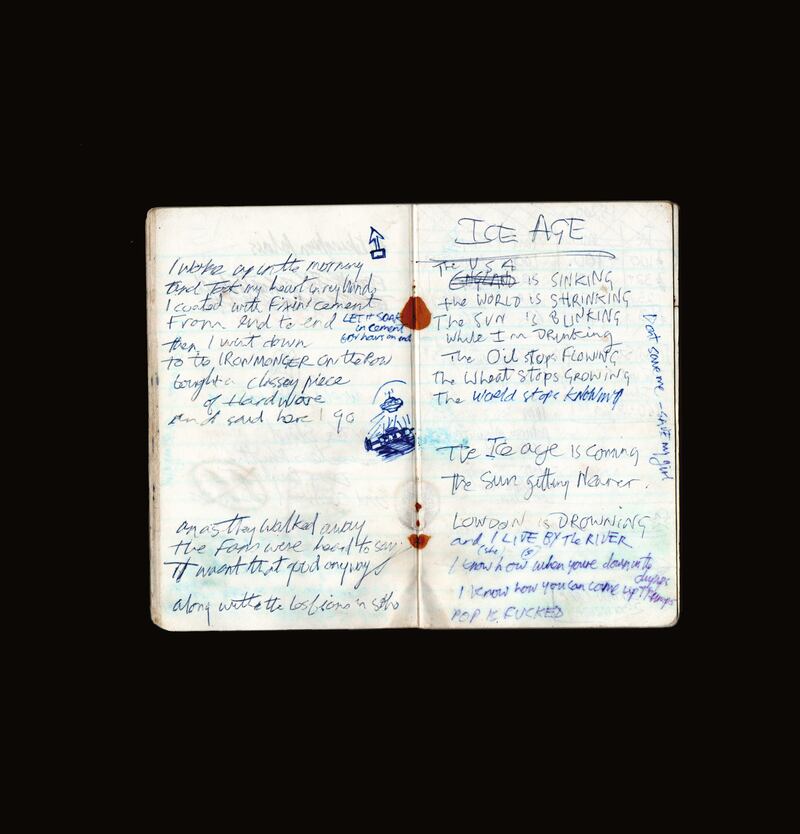 I woke up in the morning
And took my heart in my hands
I coated with Fixin' cement
From end to end
LET IT SOAK
in cement
for hours on end
then I went down
to the IRONMONGER on the ROW
bought a classey piece
of Hardware
and I said here I go
an as they walked away
the Fans were heard to say
It wasnt that good anyway
along with the lesbians in soho
ICE AGE
The U.S.A
ENGLAND IS SINKING
the WORLD IS SHRINKING
The SUN IS BLINKING
While I'm DRINKING
The Oil stops FLOWING
The Wheat stops GROWING
The World stops KNOWING
Dont save me - SAVE my girl
The Ice age is coming
The Sun getting Nearer.
LONDON is DROWNING
and I LIVE BY the RIVER
(she) (s)
I know how when youre down in the
dumps
I know how you can come up
POP IS FUCKED